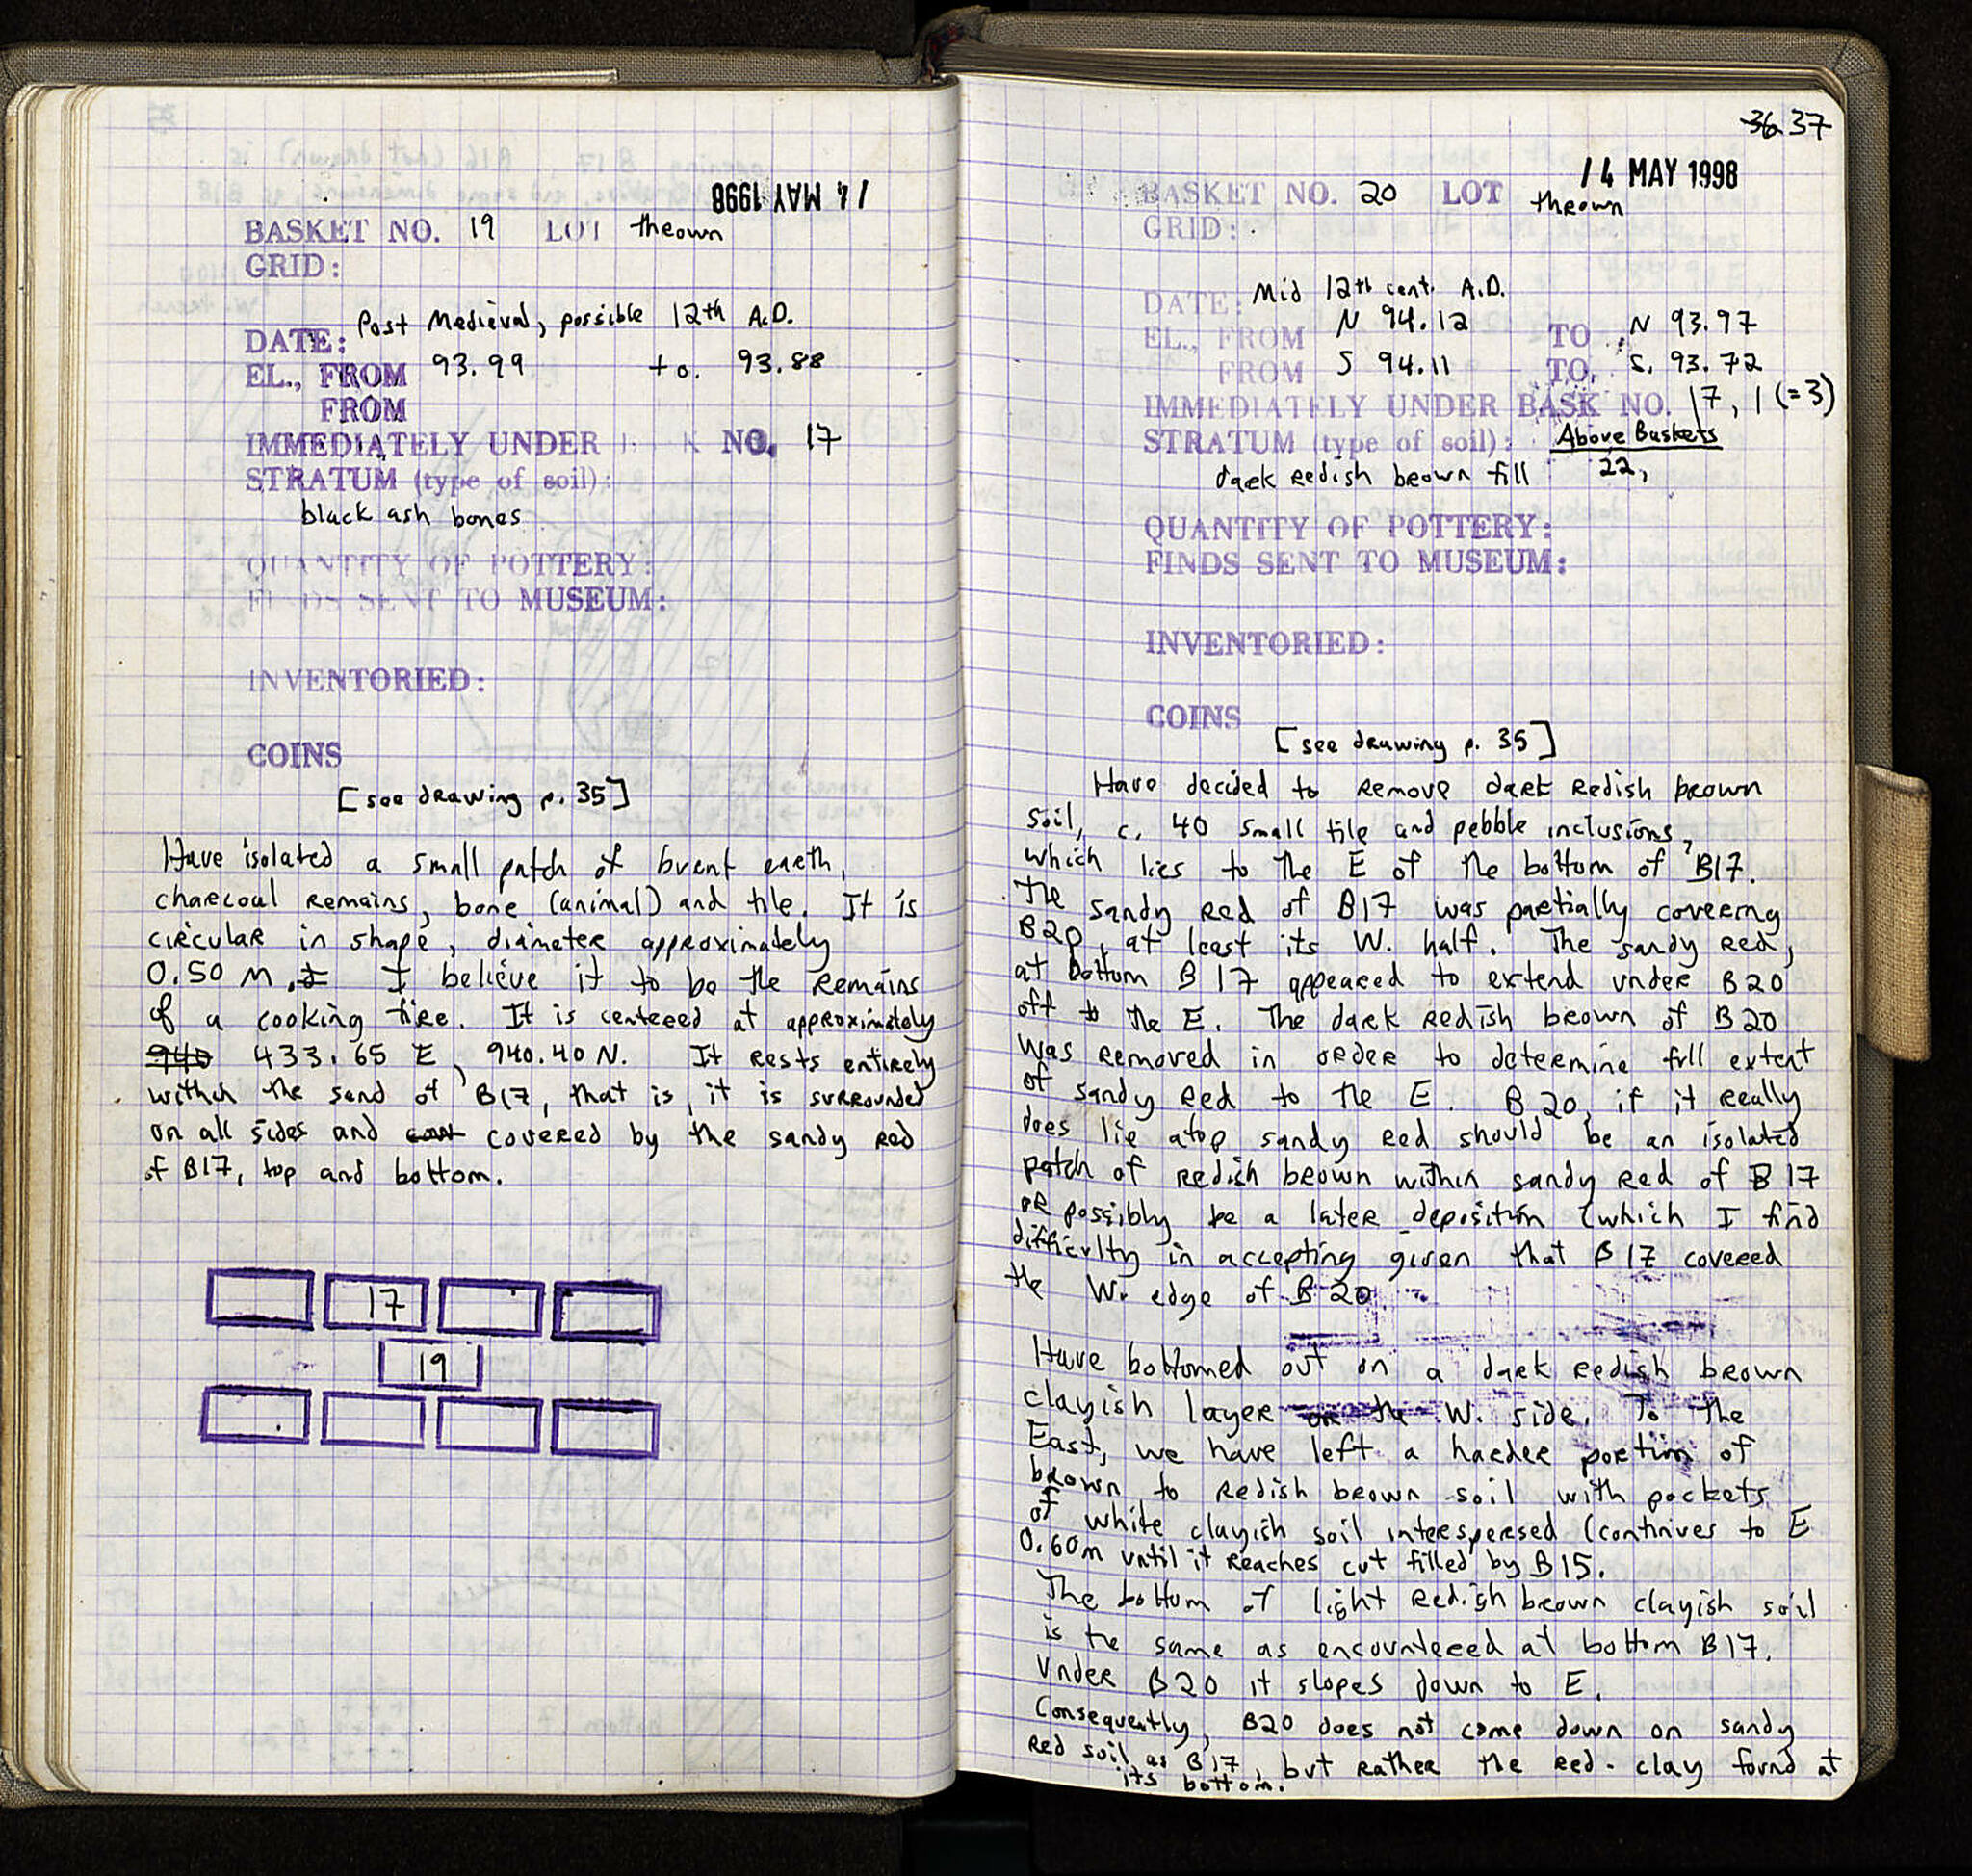 14 MAY 1998
BASKET NO. 19 LOT thrown
GRID:
Post Medieval, possible 12th A.D.
DATE:
EL., FROM 93.99 to. 93.88
FROM
IMMEDIATELY UNDER NO. 17
STRATUM (type of soil):
black ash bones
QUANTITY OF POTTERY:
FINDS SENT TO MUSEUM:
INVENTORIED:
COINS
[see drawing p. 35]
Have isolated a small patch of burnt earth,
charcoal remains, bone (animal) and tile. It is
circular in shape, diameter approximately
0.50 m. I believe it to be the remains
of a cooking fire. It is centered at approximately
940 433.65 E, 940.40 N. It rests entirely
within the sand of B17, that is, it is surrounded
on all sides and covered by the sandy red
of B17, top and bottom.
17
19
36 37
14 MAY 1998
BASKET NO. 20 LOT thrown
GRID:
DATE: Mid 12th cent. A.D.
EL., FROM N 94.12 TO N 93.97
FROM S 94.11 TO S. 93.72
IMMEDIATELY UNDER BASK NO. 17, 1 (=3)
STRATUM (type of soil): Above Baskets
dark redish brown fill 22,
QUANTITY OF POTTERY:
FINDS SENT TO MUSEUM:
INVENTORIED:
COINS
[see drawing p. 35]
Have decided to remove dark redish brown
soil, c. 40 small tile and pebble inclusions,
which lies to the E of the bottom of B17.
The sandy red of B17 was partially covering
B20, at least its W. half. The sandy red,
at bottom B17 appeared to extend under B20
off to the E. The dark redish brown of B20
was removed in order to determine full extent
of sandy red to the E. B20, if it really
does lie atop sandy red should be an isolated
patch of redish brown within sandy red of B17
or possibly be a later deposition (which I find
difficulty in accepting given that B17 covered
the W. edge of B20.
Have bottomed out on a dark redish brown
clayish layer on the W. side. To the
East, we have left a harder portion of
brown to redish brown soil with pockets
of white clayish soil interspersed (continues to E
0.60m until it reaches cut filled by B15.
The bottom of light redish brown clayish soil
is the same as encountered at bottom B17.
Under B20 it slopes down to E.
Consequently, B20 does not come down on sandy
red soil as B17, but rather the red clay found at
its bottom.